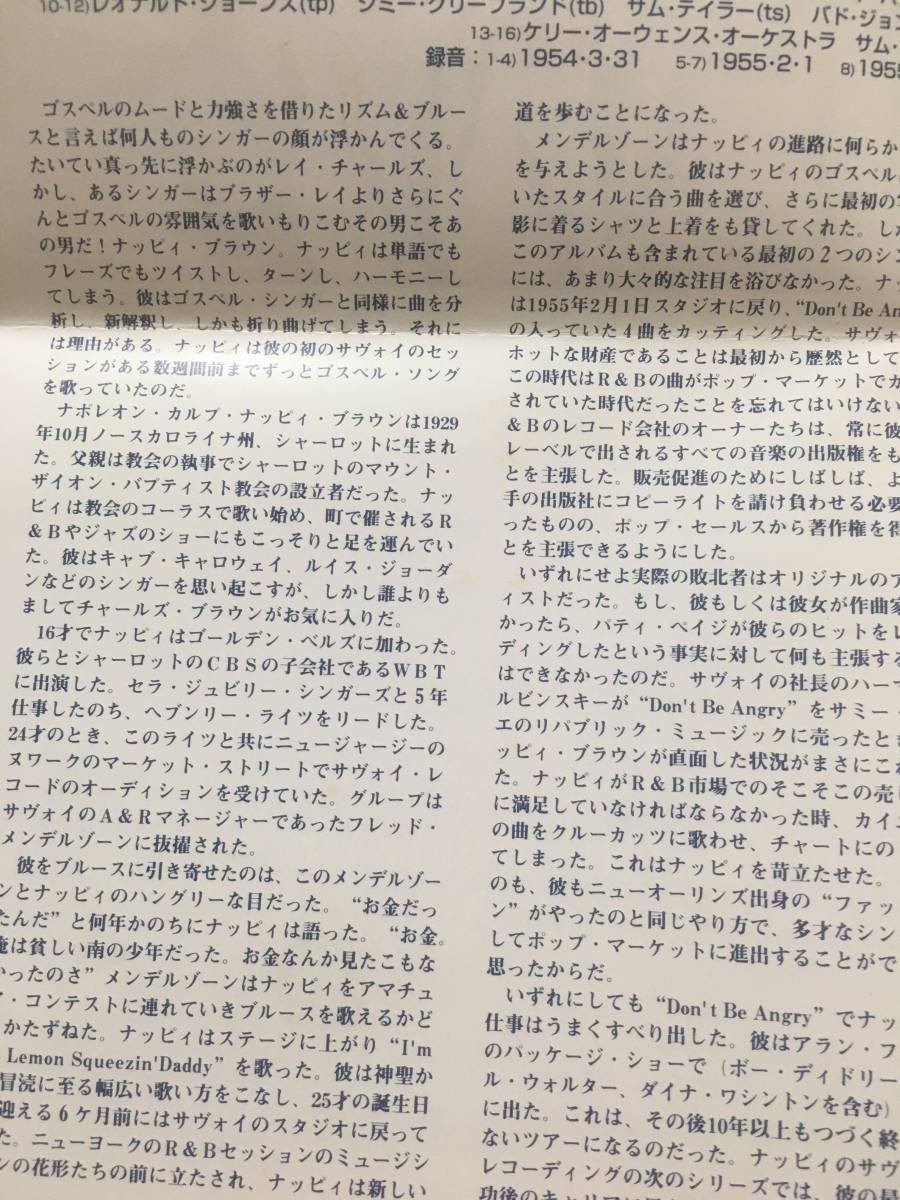 10-12)レオナルド・ジョーンズ(tp) ジミー・クリーブランド(tb) サム・テイラー(ts) バド・ジョン
13-16)ケリー・オーウェンス・オーケストラ サム・
録音:1-4)1954・3・31 5-7)1955・2・1 8)1955
ゴスペルのムードと力強さを借りたリズム&ブルー
スと言えば何人ものシンガーの顔が浮かんでくる。
たいてい真っ先に浮かぶのがレイ・チャールズ、し
かし、あるシンガーはブラザー・レイよりさらにぐ
んとゴスペルの雰囲気を歌いもりこむその男こそあ
の男だ!ナッピィ・ブラウン。ナッピィは単語でも
フレーズでもツイストし、ターンし、ハーモニーし
てしまう。彼はゴスペル・シンガーと同様に曲を分
析し、新解釈し、しかも折り曲げてしまう。それに
は理由がある。ナッピィは彼の初のサヴォイのセッ
ションがある数週間前までずっとゴスペル・ソング
を歌っていたのだ。
ナポレオン・カルプ・ナッピィ・ブラウンは1929
年10月ノースカロライナ州、シャーロットに生まれ
た。父親は教会の執事でシャーロットのマウント・
ザイオン・バプティスト教会の設立者だった。ナッ
ピィは教会のコーラスで歌い始め、町で催されるR
&Bやジャズのショーにもこっそりと足を運んでい
た。彼はキャブ・キャロウェイ、ルイス・ジョーダ
ンなどのシンガーを思い起こすが、しかし誰よりも
ましてチャールズ・ブラウンがお気に入りだ。
16才でナッピィはゴールデン・ベルズに加わった。
彼らとシャーロットのCBSの子会社であるWBT
に出演した。セラ・ジュビリー・シンガーズと5年
仕事したのち、ヘブンリー・ライツをリードした。
24才のとき、このライツと共にニュージャージーの
ヌワークのマーケット・ストリートでサヴォイ・レ
コードのオーディションを受けていた。グループは
サヴォイのA&Rマネージャーであったフレッド・
メンデルゾーンに抜擢された。
彼をブルースに引き寄せたのは、このメンデルゾー
ンとナッピィのハングリーな目だった。“お金だっ
たんだ”と何年かのちにナッピィは語った。“お金。
俺は貧しい南の少年だった。お金なんか見たこもな
かったのさ”メンデルゾーンはナッピィをアマチュ
ア・コンテストに連れていきブルースを歌えるかど
かたずねた。ナッピィはステージに上がり“I'm
Lemon Squeezin'Daddy”を歌った。彼は神聖か
冒涜に至る幅広い歌い方をこなし、25才の誕生日
迎える6ケ月前にはサヴォイのスタジオに戻って
た。ニューヨークのR&Bセッションのミュージシ
ンの花形たちの前に立たされ、ナッピィは新しい
道を歩むことになった。
メンデルゾーンはナッピィの進路に何らか
を与えようとした。彼はナッピィのゴスペル
いたスタイルに合う曲を選び、さらに最初の写
影に着るシャツと上着をも貸してくれた。しか
このアルバムも含まれている最初の2つのシン
には、あまり大々的な注目を浴びなかった。ナッ
は1955年2月1日スタジオに戻り、“Don't Be An
の入っていた4曲をカッティングした。サヴォ
ホットな財産であることは最初から歴然として
この時代はR&Bの曲がポップ・マーケットでカ
されていた時代だったことを忘れてはいけない
&Bのレコード会社のオーナーたちは、常に彼
レーベルで出されるすべての音楽の出版権をも
とを主張した。販売促進のためにしばしば、よ
手の出版社にコピーライトを請け負わせる必要
ったものの、ポップ・セールスから著作権を得
とを主張できるようにした。
いずれにせよ実際の敗北者はオリジナルのア
ィストだった。もし、彼もしくは彼女が作曲家
かったら、パティ・ペイジが彼らのヒットをレ
ディングしたという事実に対して何も主張する
はできなかったのだ。サヴォイの社長のハーマ
ルビンスキーが“Don't Be Angry”をサミー・
エのリパブリック・ミュージックに売ったとき
ッピィ・ブラウンが直面した状況がまさにこれ
た。ナッピィがR&B市場でのそこそこの売り
に満足していなければならなかった時、カイエ
の曲をクルーカッツに歌わせ、チャートにの
てしまった。これはナッピィを苛立たせた。
のも、彼もニューオーリンズ出身の“ファッ
ン”がやったのと同じやり方で、多才なシン
してポップ・マーケットに進出することがで
思ったからだ。
いずれにしても“Don't Be Angry”でナッ
仕事はうまくすべり出した。彼はアラン・フ
のパッケージ・ショーで(ボー・ディドリー
ル・ウォルター、ダイナ・ワシントンを含む)
に出た。これは、その後10年以上もつづく終
ないツアーになるのだった。ナッピィのサヴ
レコーディングの次のシリーズでは、彼の最